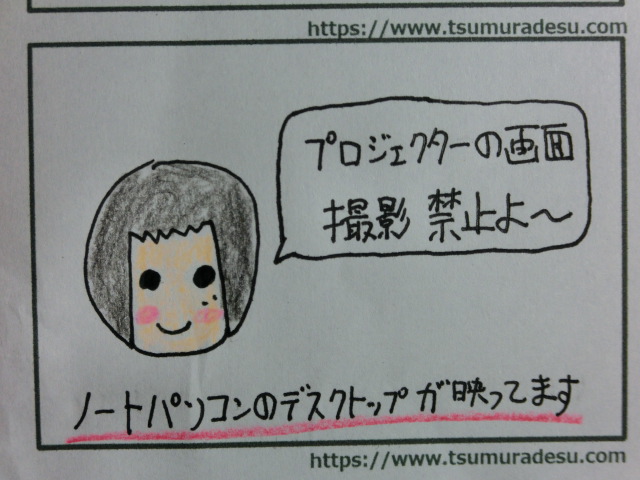 https://www.tsumuradesu.com
プロジェクターの画面
撮影禁止よ～
ノートパソコンのデスクトップが映ってます
https://www.tsumuradesu.com